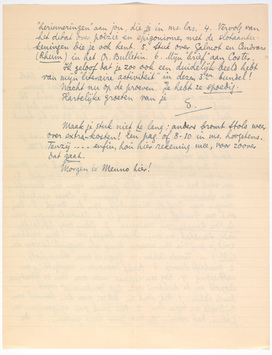 herinneringen aan jou, die je in ms. las. 4. Vervolg van
het debat over poëzie en epigonisme, met de slotaantee-
keningen die je ook kent. 5. Stuk over Helman en Andras
(Rhum) in het D. Bulletin. 6. Mijn brief aan Coster.
Ik geloof dat je zoo ook een duidelijk beeld hebt
van mijn literaire activiteit in dezen bundel!
Wacht nu op de proeven. Je hebt ze spoedig.
Hartelijke groeten van je
E.
Maak je stuk niet te lang: anders bromt Stols weer
over extra-kosten! Een pag. of 8-10 in ms. hoogstens.
Tenzij .... enfin, hou hier rekening mee, voor zoover
dat gaat.
Morgen is Menno hier!